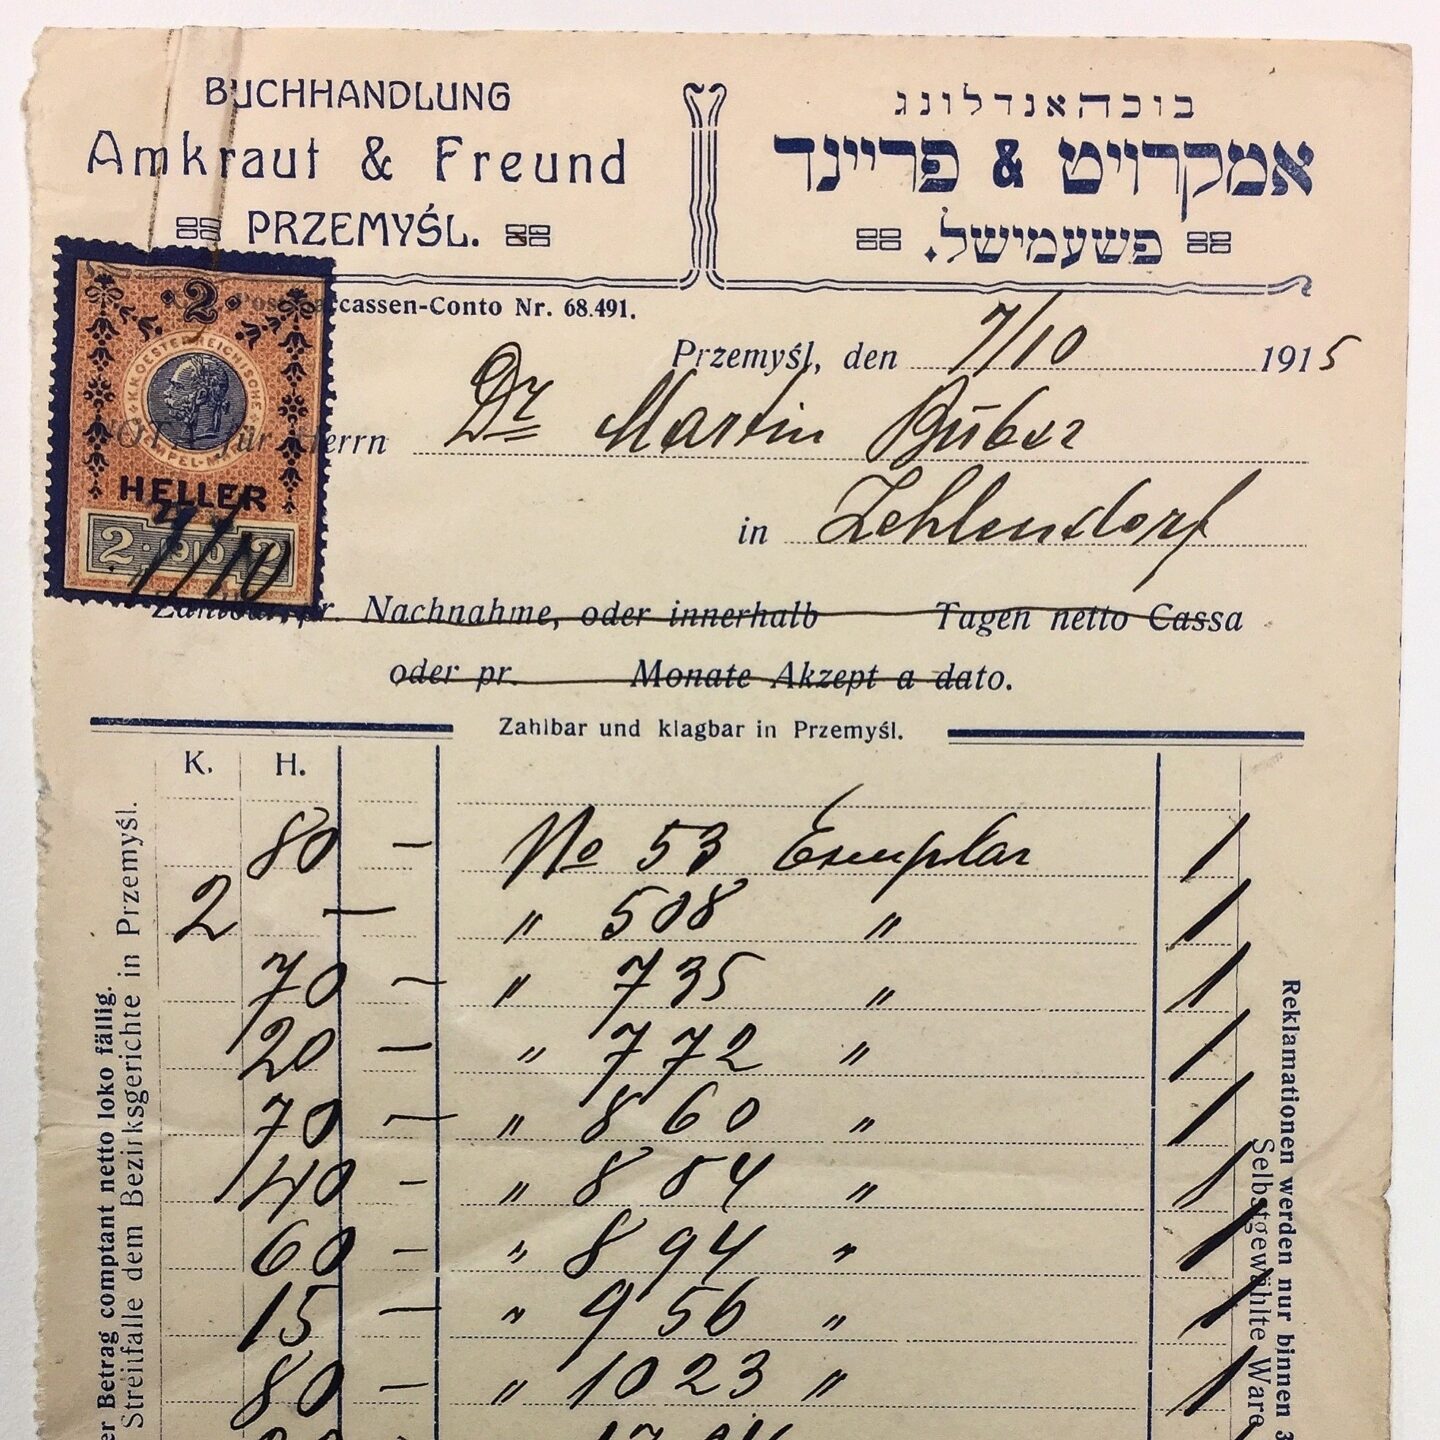 BUCHHANDLUNG
Amkraut & Freund
PRZEMYŚL.
בוכהאנדלונג
אמקרויט & פריינד
פשעמישל.
cassen-Conto Nr. 68.491.
2
K.K. OESTERREICHISCHE
HELLER
2 · 1910 · 2
7/10
Przemyśl, den 7/10 1915
für Herrn Dr Martin Buber
in Zehlendorf
Zahlbar, pr. Nachnahme, oder innerhalb Tagen netto Cassa
oder pr. Monate Akzept a dato.
Zahlbar und klagbar in Przemyśl.
K. H.
80 — No 53 Exemplar 1
2 — „ 508 „ 1
70 — „ 735 „ 1
20 — „ 772 „ 1
70 — „ 860 „ 1
40 — „ 884 „ 1
60 — „ 894 „ 1
15 — „ 956 „ 1
80 — „ 1023 „ 1
er Betrag comptant netto loko fällig.
Streitfalle dem Bezirksgerichte in Przemyśl.
Reklamationen werden nur binnen 3
Selbstgewählte Ware